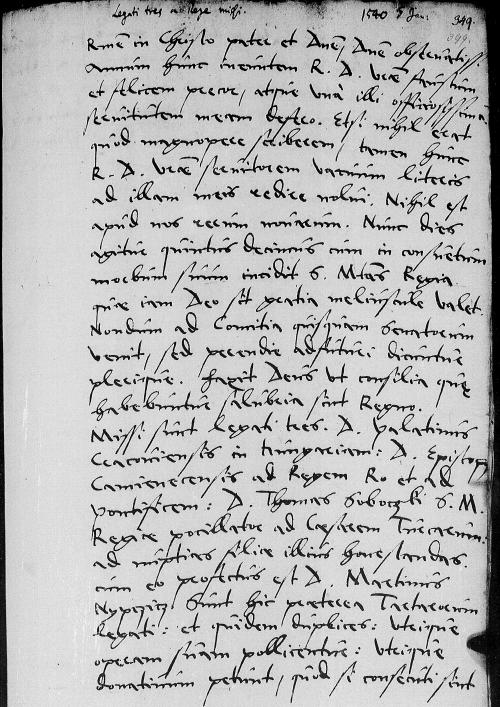 Legati tres a Rege missi.
1540 5 Jan: 349.
399.
Rme in Christo pater et Dne, Dne obseruatiss.
Annum hunc ineuntem R. D. Vrae faustum
et felicem precor, atque una illi officiosissimam
seruitutem meam defero. Etsi nihil erat
quod magnopere scriberem, tamen hunc
R. D. Vrae seruitorem vacuum literis
ad illam meis redire nolui. Nihil est
apud nos rerum nouarum. Nunc dies
agitur quintus decimus cum in consuetum
morbum suum incidit S. Mtas Regia
quae iam Deo sit gratia meliuscule valet.
Nondum ad Comitia quisquam Senatorum
venit, sed perendie adfuturi dicuntur
plerique. Faxit Deus ut consilia quae
habebuntur salubria sint Regno.
Missi sunt legati tres. D. Palatinus
Cracouiensis in Vungariam: D. Episcopus
Camenecensis ad Regem Ro et ad
Pontificem: D. Thomas Soboczki S. M.
Regiae pocillator ad Caesarem Turcarum:
ad nuptias filiae illius honestandas.
cum eo profectus est D. Martinus
Sunt hic praeterea Tartarorum
legati: et quidem duplices: utrique
operam suam pollicentur: utrique
donatiuum petunt, quod si consecuti sint